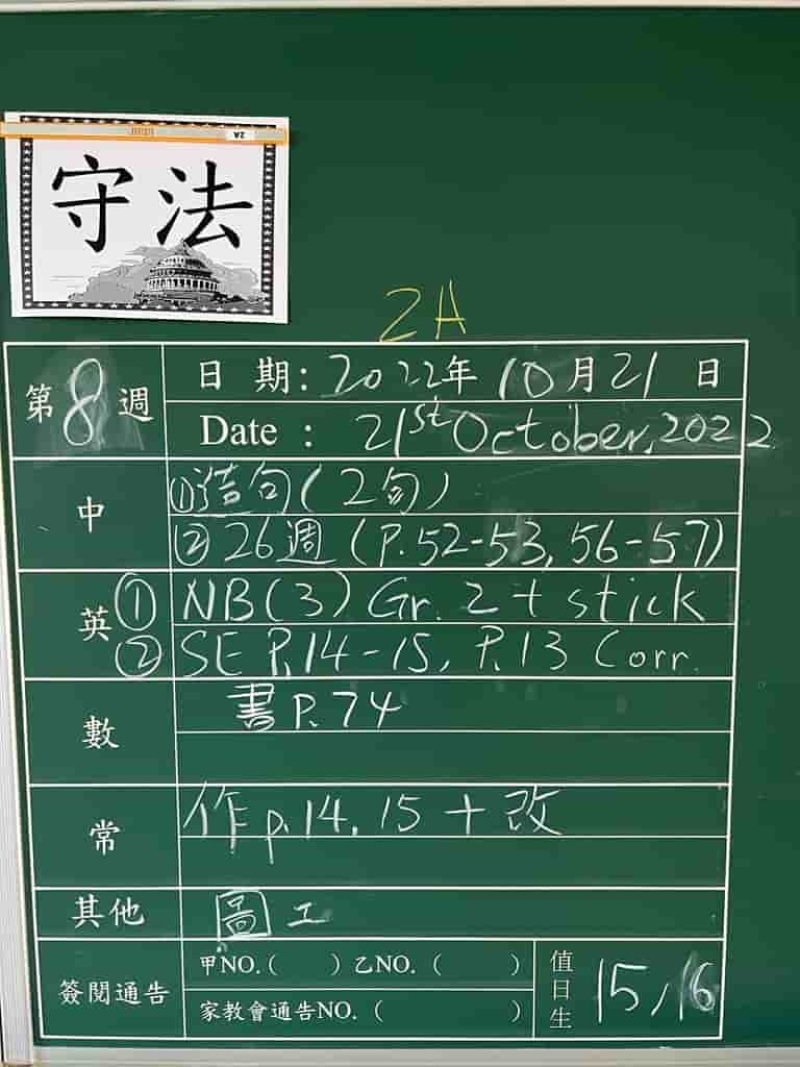 守法
2A
第8週
日 期: 2022年 10月21 日
Date : 21st October, 2022
中
①造句(2句)
②26週(P.52-53, 56-57)
英
① NB(3) Gr. 2 + stick
② SE P.14-15, P.13 Corr.
數
書P.74
常
作p.14, 15 + 改
其他
圖工
簽閱通告
甲NO.( ) 乙NO. ( )
家教會通告NO. ( )
值日生
15, 16